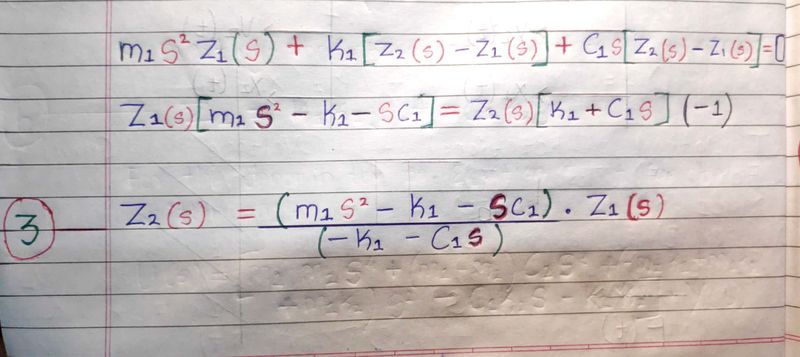 m₁S²Z₁(S) + K₁[Z₂(s) – Z₁(s)] + C₁s[Z₂(s) – Z₁(s)] = 0
Z₁(s)[m₁S² – K₁ – SC₁] = Z₂(s)[K₁ + C₁S] (-1)
③ Z₂(s) = (m₁S² – K₁ – SC₁) . Z₁(s)
(-K₁ – C₁S)